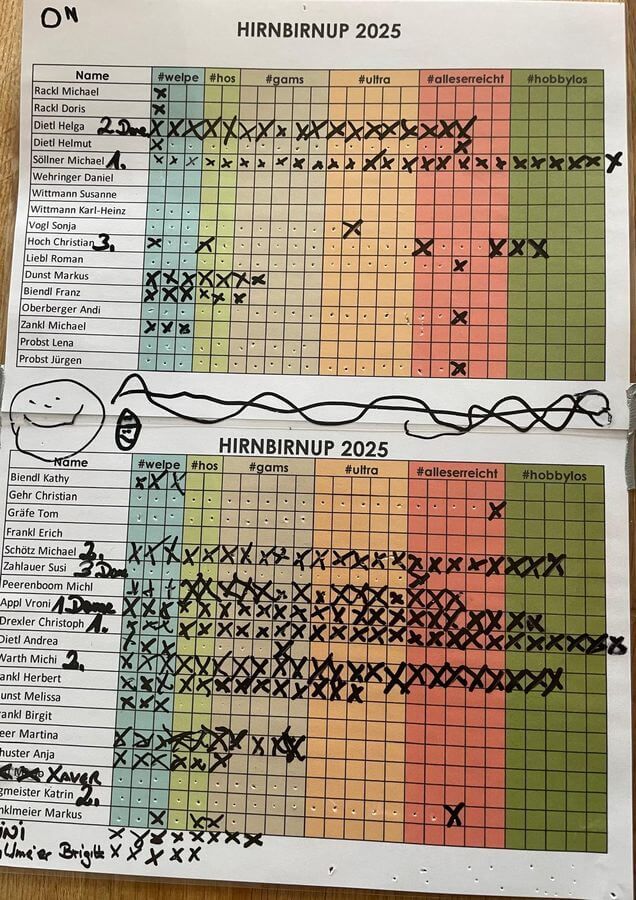 ON
HIRNBIRNUP 2025
Name #welpe #hos #gams #ultra #alleserreicht #hobbylos
Rackl Michael
Rackl Doris
Dietl Helga 2. Dame
Dietl Helmut
Söllner Michael 1.
Wehringer Daniel
Wittmann Susanne
Wittmann Karl-Heinz
Vogl Sonja
Hoch Christian 3.
Liebl Roman
Dunst Markus
Biendl Franz
Oberberger Andi
Zankl Michael
Probst Lena
Probst Jürgen
HIRNBIRNUP 2025
Name #welpe #hos #gams #ultra #alleserreicht #hobbylos
Biendl Kathy
Gehr Christian
Gräfe Tom
Frankl Erich
Schötz Michael 2.
Zahlauer Susi 3 Dame
Peerenboom Michl
Appl Vroni 1 Dame
Drexler Christoph 1.
Dietl Andrea
Warth Michi 2.
ankl Herbert
unst Melissa
ankl Birgit
eer Martina
huster Anja
XAVER
gmeister Katrin 2.
nklmeier Markus
meier Brigitte